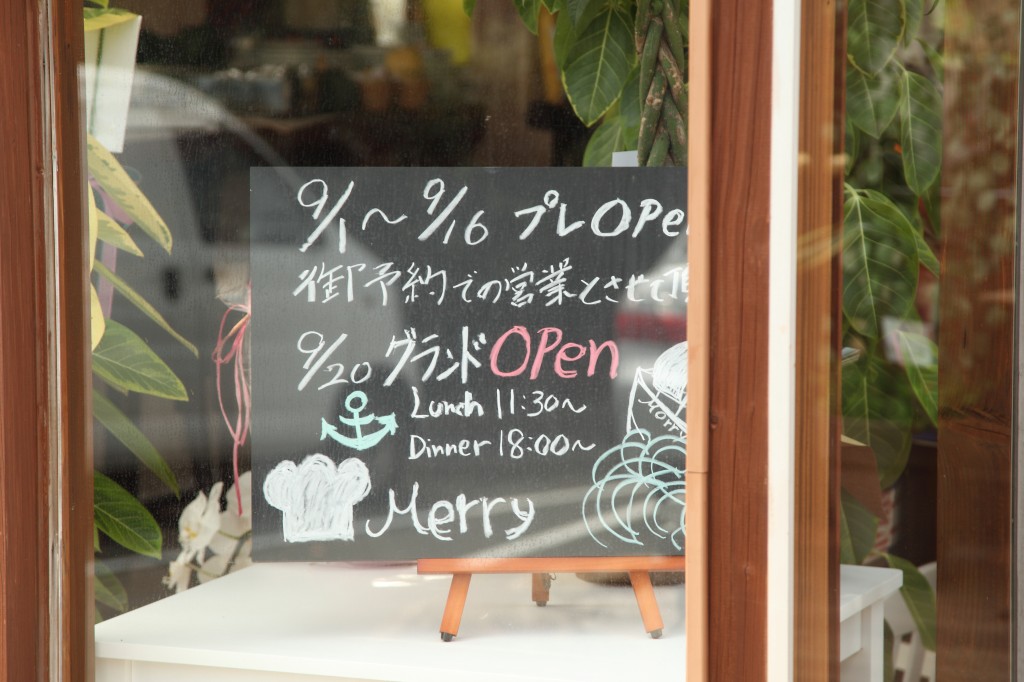 9/1～9/16 プレOPen
御予約での営業とさせて頂
9/20 グランドOPen
Lunch 11:30～
Dinner 18:00～
Merry